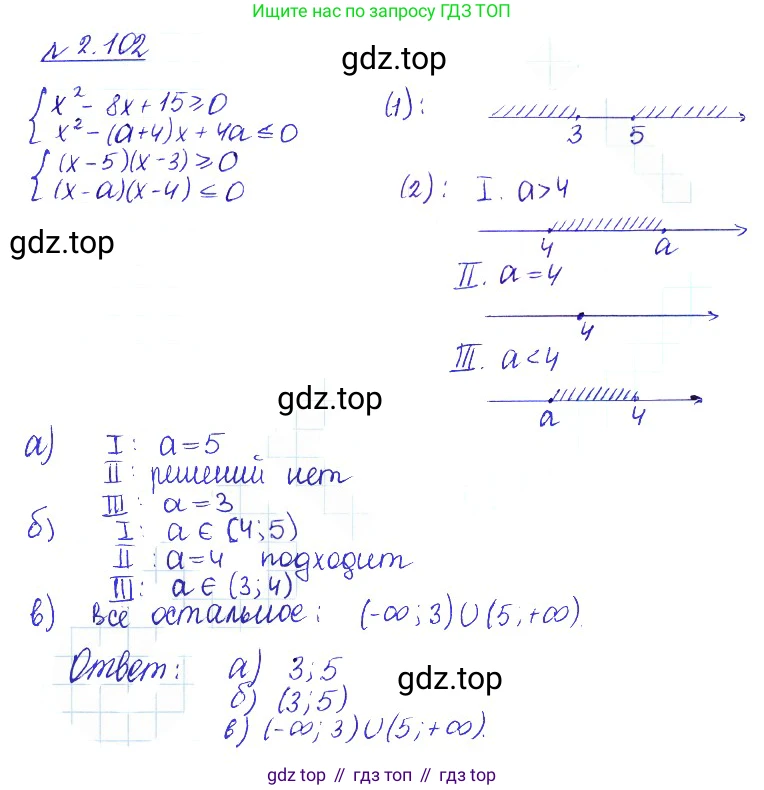 Ищите нас по запросу ГДЗ ТОП
№ 2.102
gdz.top
{ x² - 8x + 15 ≥ 0
{ x² - (a+4)x + 4a ≤ 0
{ (x-5)(x-3) ≥ 0
{ (x-a)(x-4) ≤ 0
(1):
3 5
(2): I. a>4
4 a
gdz.top
II. a=4
4
III. a<4
a 4
gdz.top
а) I: a=5
II: решений нет
III: a=3
б) I: a∈(4;5)
II: a=4 подходит
III: a∈(3;4)
в) все остальное: (-∞;3)∪(5;+∞).
Ответ: а) 3;5
gdz.top
б) (3;5)
в) (-∞;3)∪(5;+∞).
gdz top // гдз топ // gdz top